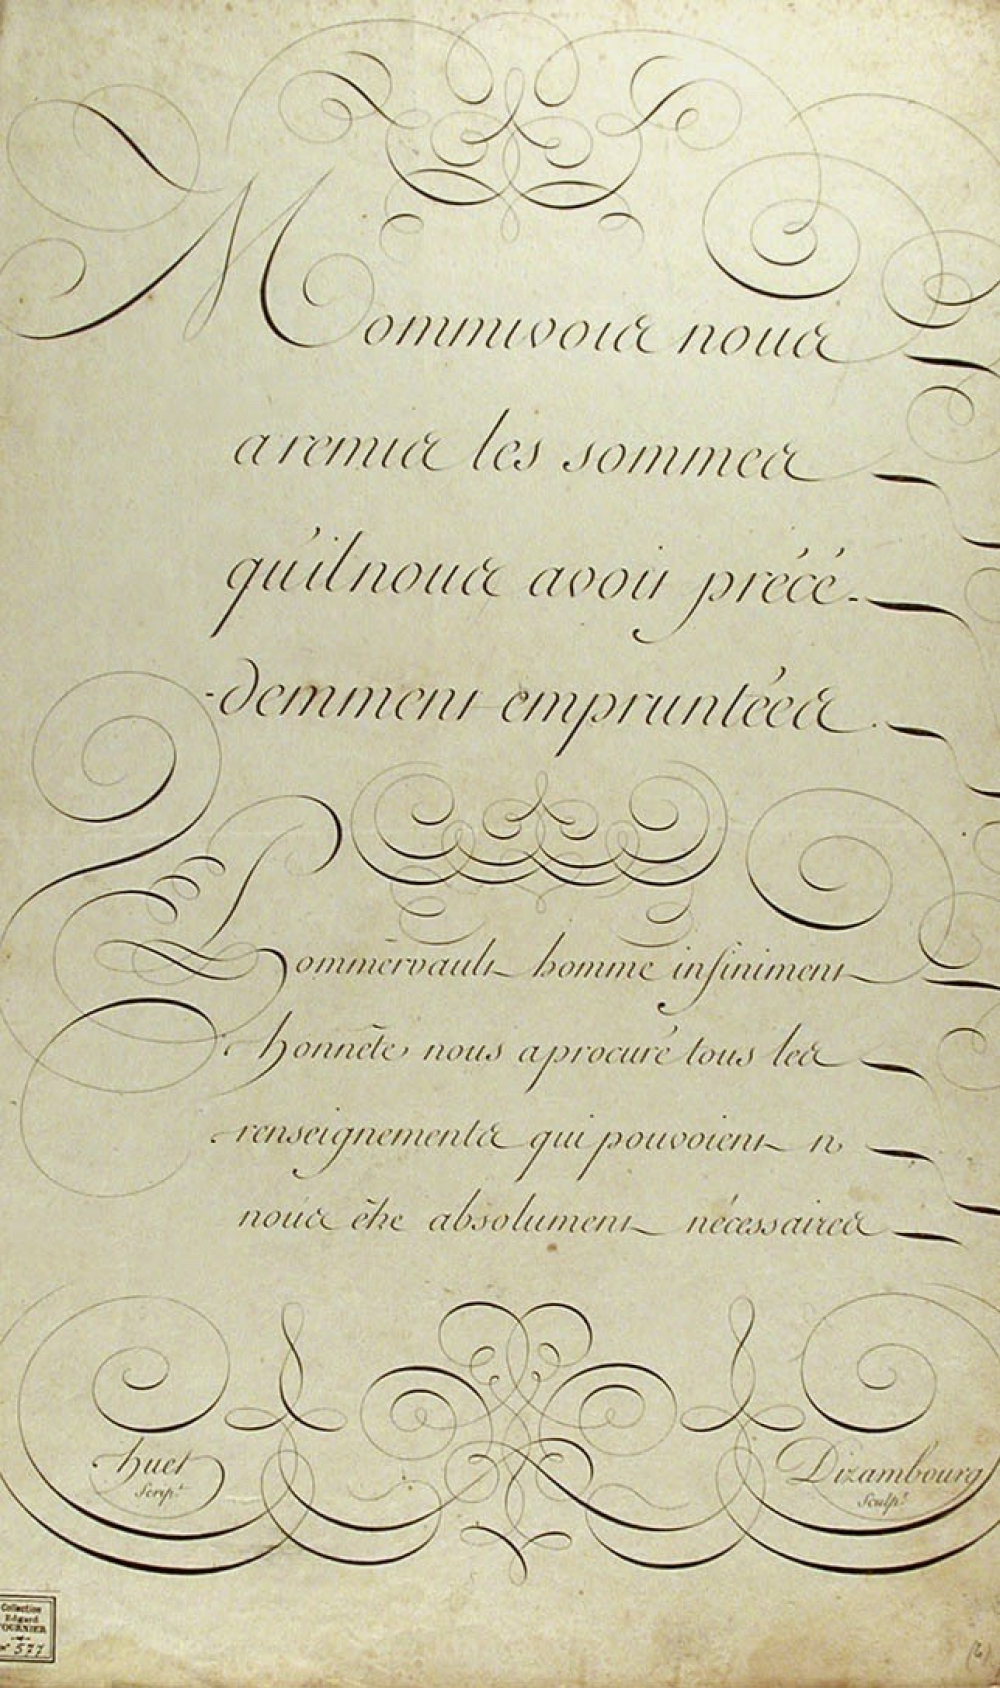 Mommivoir nous
a remis les sommes
qu'il nous avoit précé-
-demment empruntées.
Pommérvault homme infiniment
honnête nous a procuré tous les
renseignements qui pouvoient n
nous être absolument nécessaires
huet
Scrip.t
Dizambourg
Sculp.t
Collection
Edgard
FOURNIER
n° 577
(6)